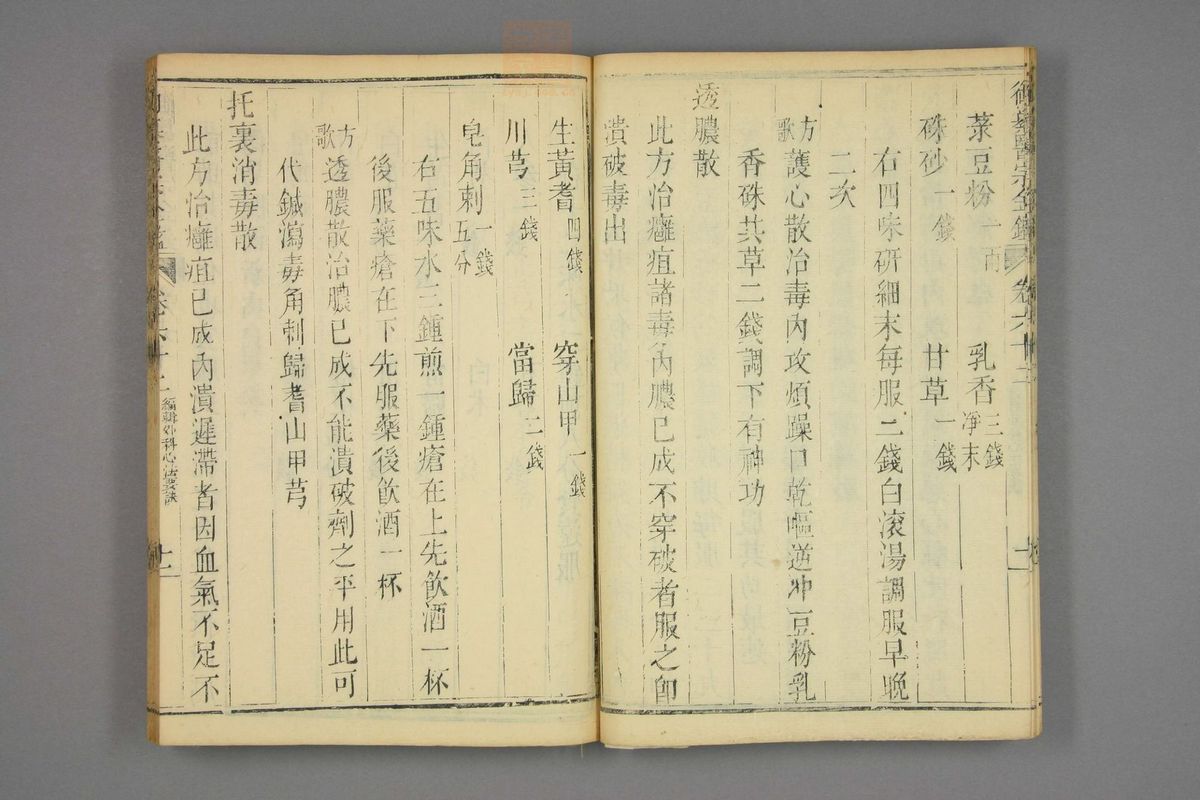 御纂醫宗金鑑 卷六十二
菉豆粉一兩 乳香三錢淨末
硃砂一錢 甘草一錢
右四味研細末每服二錢白滾湯調服早晚
二次
方歌 護心散治毒內攻煩躁口乾嘔逆冲豆粉乳
香硃共草二錢調下有神功
透膿散
此方治癰疽諸毒內膿已成不穿破者服之卽
潰破毒出
生黃耆四錢 穿山甲一錢
川芎三錢 當歸二錢
皂角刺一錢五分
右五味水三鍾煎一鍾瘡在上先飮酒一杯
後服藥瘡在下先服藥後飮酒一杯
方歌 透膿散治膿已成不能潰破劑之平用此可
代鍼瀉毒角刺歸耆山甲芎
托裏消毒散
此方治癰疽已成內潰遲滯者因血氣不足不
卷六十二 編輯外科心法要訣